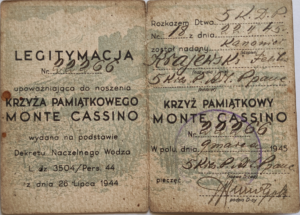 LEGITYMACJA
Nr. 22966
upoważniająca do noszenia
KRZYŻA PAMIĄTKOWEGO
MONTE CASSINO
wydano na podstawie
Dekretu Naczelnego Wodza
L. dz. 3504/Pers. 44
z dnia 26 Lipca 1944
Rozkazem Dtwa. 5 K.D.P.
Nr. z dnia
został nadany
Krajewski
KRZYŻ PAMIĄTKOWY
MONTE CASSINO
Nr. 22966
w polu, dnia 9 marca 1945
pieczęć